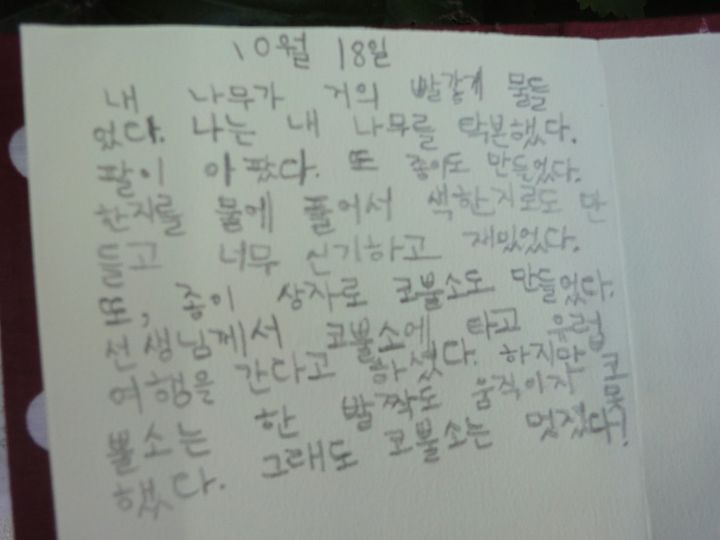 10월 18일
내 나무가 거의 빨갛게 물들
었다. 나는 내 나무를 탁본했다.
팔이 아팠다. 또 종이도 만들었다.
한지를 물에 풀어서 색한지로도 만
들고 너무 신기하고 재밌었다.
또, 종이 상자로 코뿔소도 만들었다.
선생님께서 코뿔소에 타고 유럽
여행을 간다고 하셨다. 하지만 코
뿔소는 한 발짝도 움직이지 못
했다. 그래도 코뿔소는 멋졌다!